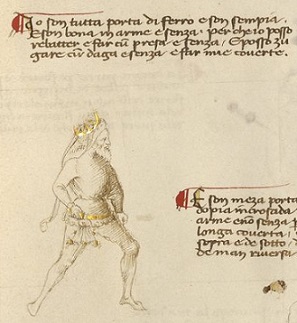 Io son tutta porta di ferro e son sempia.
E son bona in arme e senza. per che io posso
rebatter e far cum presa e senza, E posso zu
gare cum daga e senza e far mie coverte.
E son meza porta
dopia incrosada
arme e no senza
longa coverta,
sopra e de sotto
de man riversa